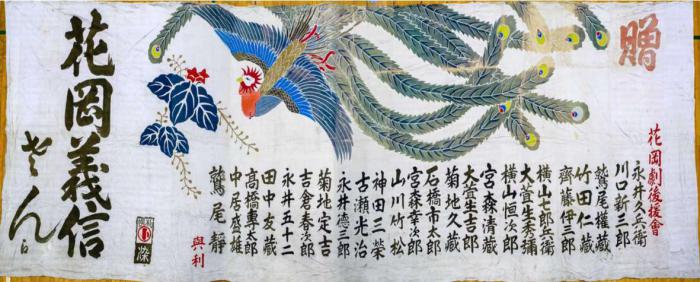 贈
花岡劇後援會
永井久兵衛
川口新三郎
鷲尾權蔵
竹田仁蔵
齊藤伊三郎
横山七郎兵衛
大萱生秀彌
横山恒次郎
宮森清蔵
大萱生吉郎
菊地久蔵
石橋市太郎
宮森幸次郎
山川竹松
神田三榮
古瀬光治
永井德三郎
菊地定吉
吉倉春次郎
永井五十二
田中友蔵
髙橋專太郎
中居盛雄
鷲尾靜
與利
花岡義信
さん江
染